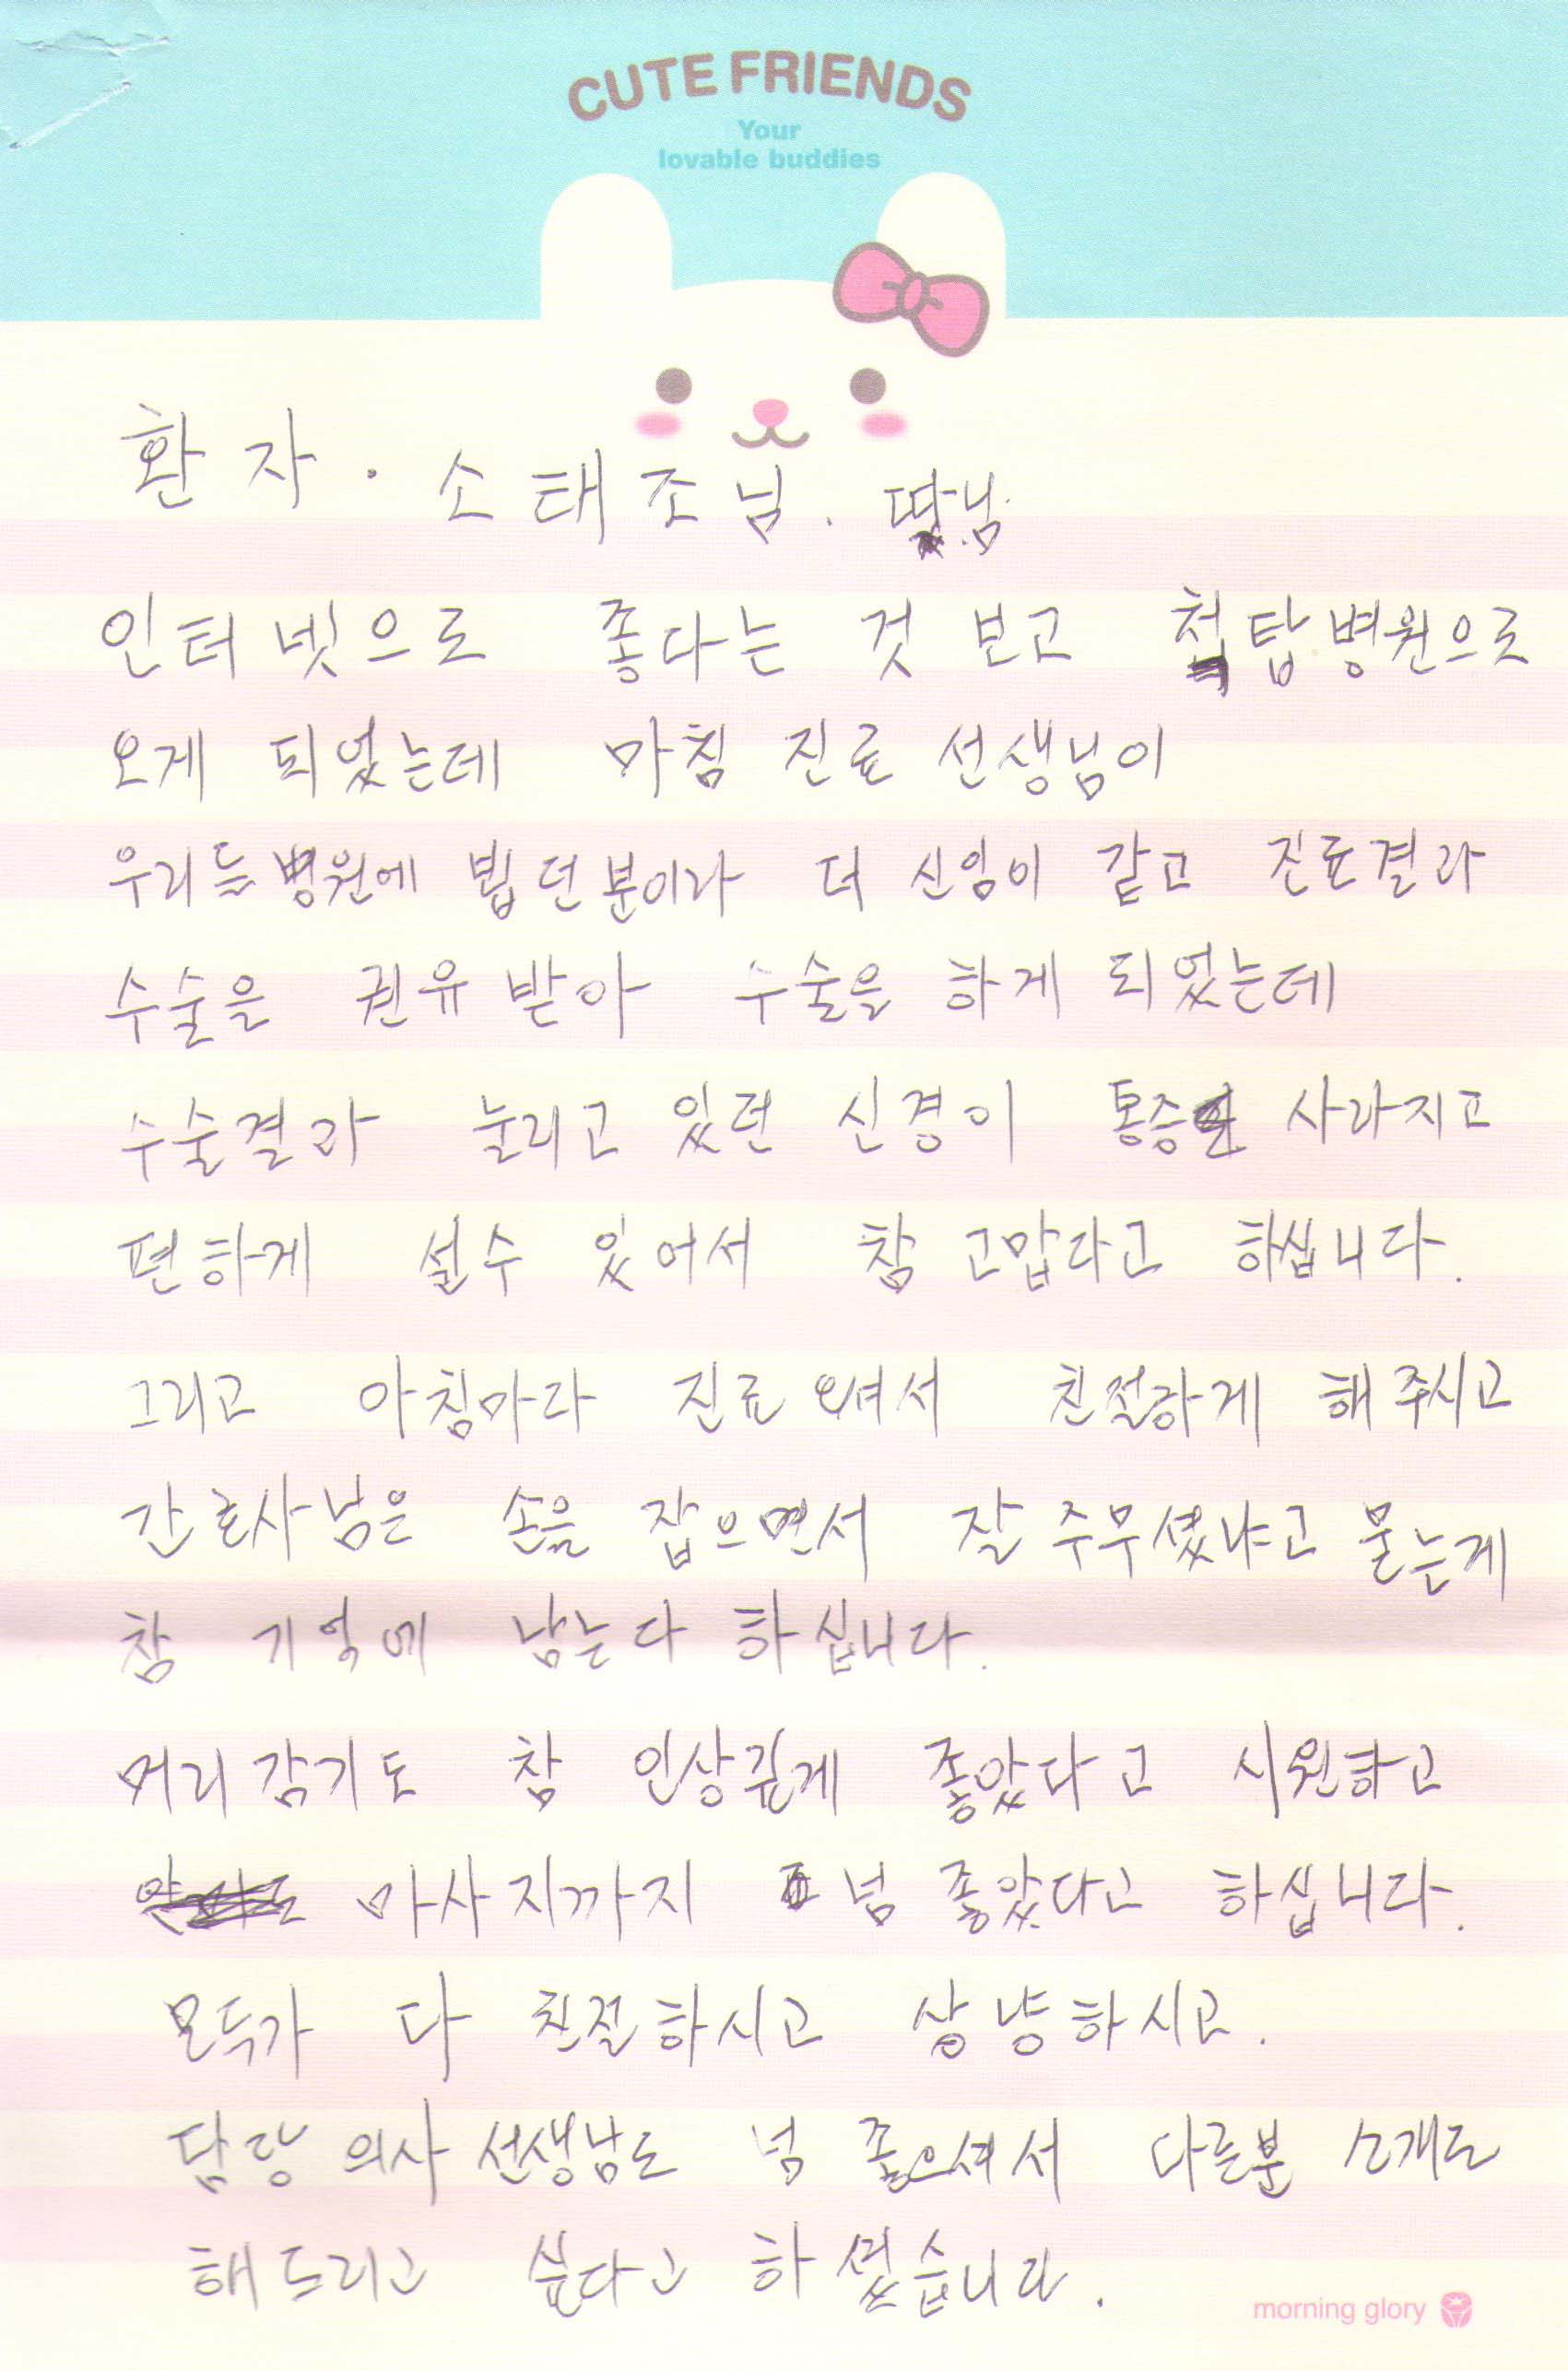 CUTE FRIENDS
Your
lovable buddies
환자. 소태조님. 딸님
인터넷으로 좋다는 것 보고 척탑병원으로
오게 되었는데 마침 진료 선생님이
우리들병원에 뵙던분이라 더 신임이 같고 진료결과
수술을 권유받아 수술을 하게 되었는데
수술결과 눌리고 있던 신경이 통증 사라지고
편하게 설수 있어서 참 고맙다고 하십니다.
그리고 아침마다 진료오셔서 친절하게 해주시고
간호사님은 손을 잡으면서 잘 주무셨냐고 묻는게
참 기억에 남는다 하십니다.
머리감기도 참 인상깊게 좋았다고 시원하고
마사지까지 넘 좋았다고 하십니다.
모두가 다 친절하시고 상냥하시고.
담당 의사선생님도 넘 좋으셔서 다른분 소개도
해드리고 싶다고 하셨습니다.
morning glory